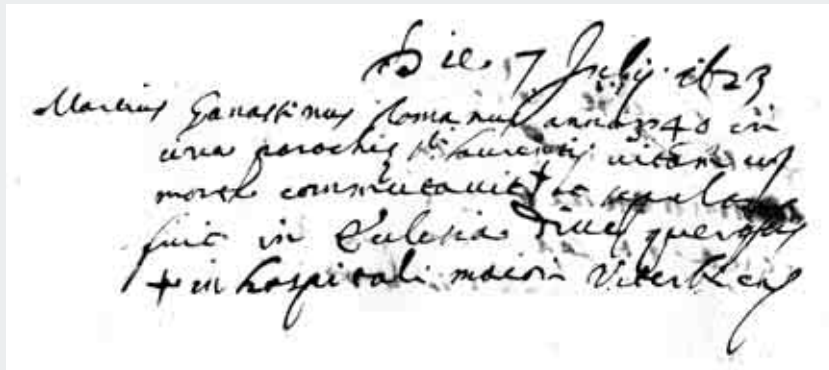 Die 7 Julij 1623
Martius Ganassinus Romanus annor 40 in
circa parochię sti Laurentij vitam cũ
morte commutavit + et sepultus
fuit in Ecclesia Quercus
+ in hospitali maiori Viterbien